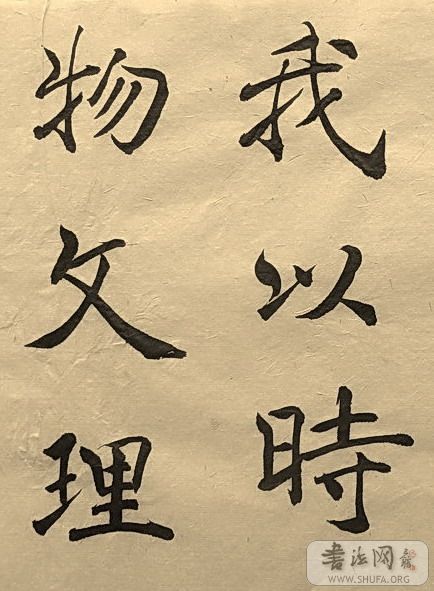 我以時
物文理
書法网
WWW.SHUFA.ORG